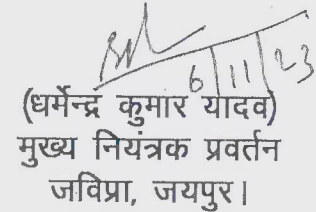 6/11/23
(धर्मेन्द्र कुमार यादव)
मुख्य नियंत्रक प्रवर्तन
जविप्रा, जयपुर।